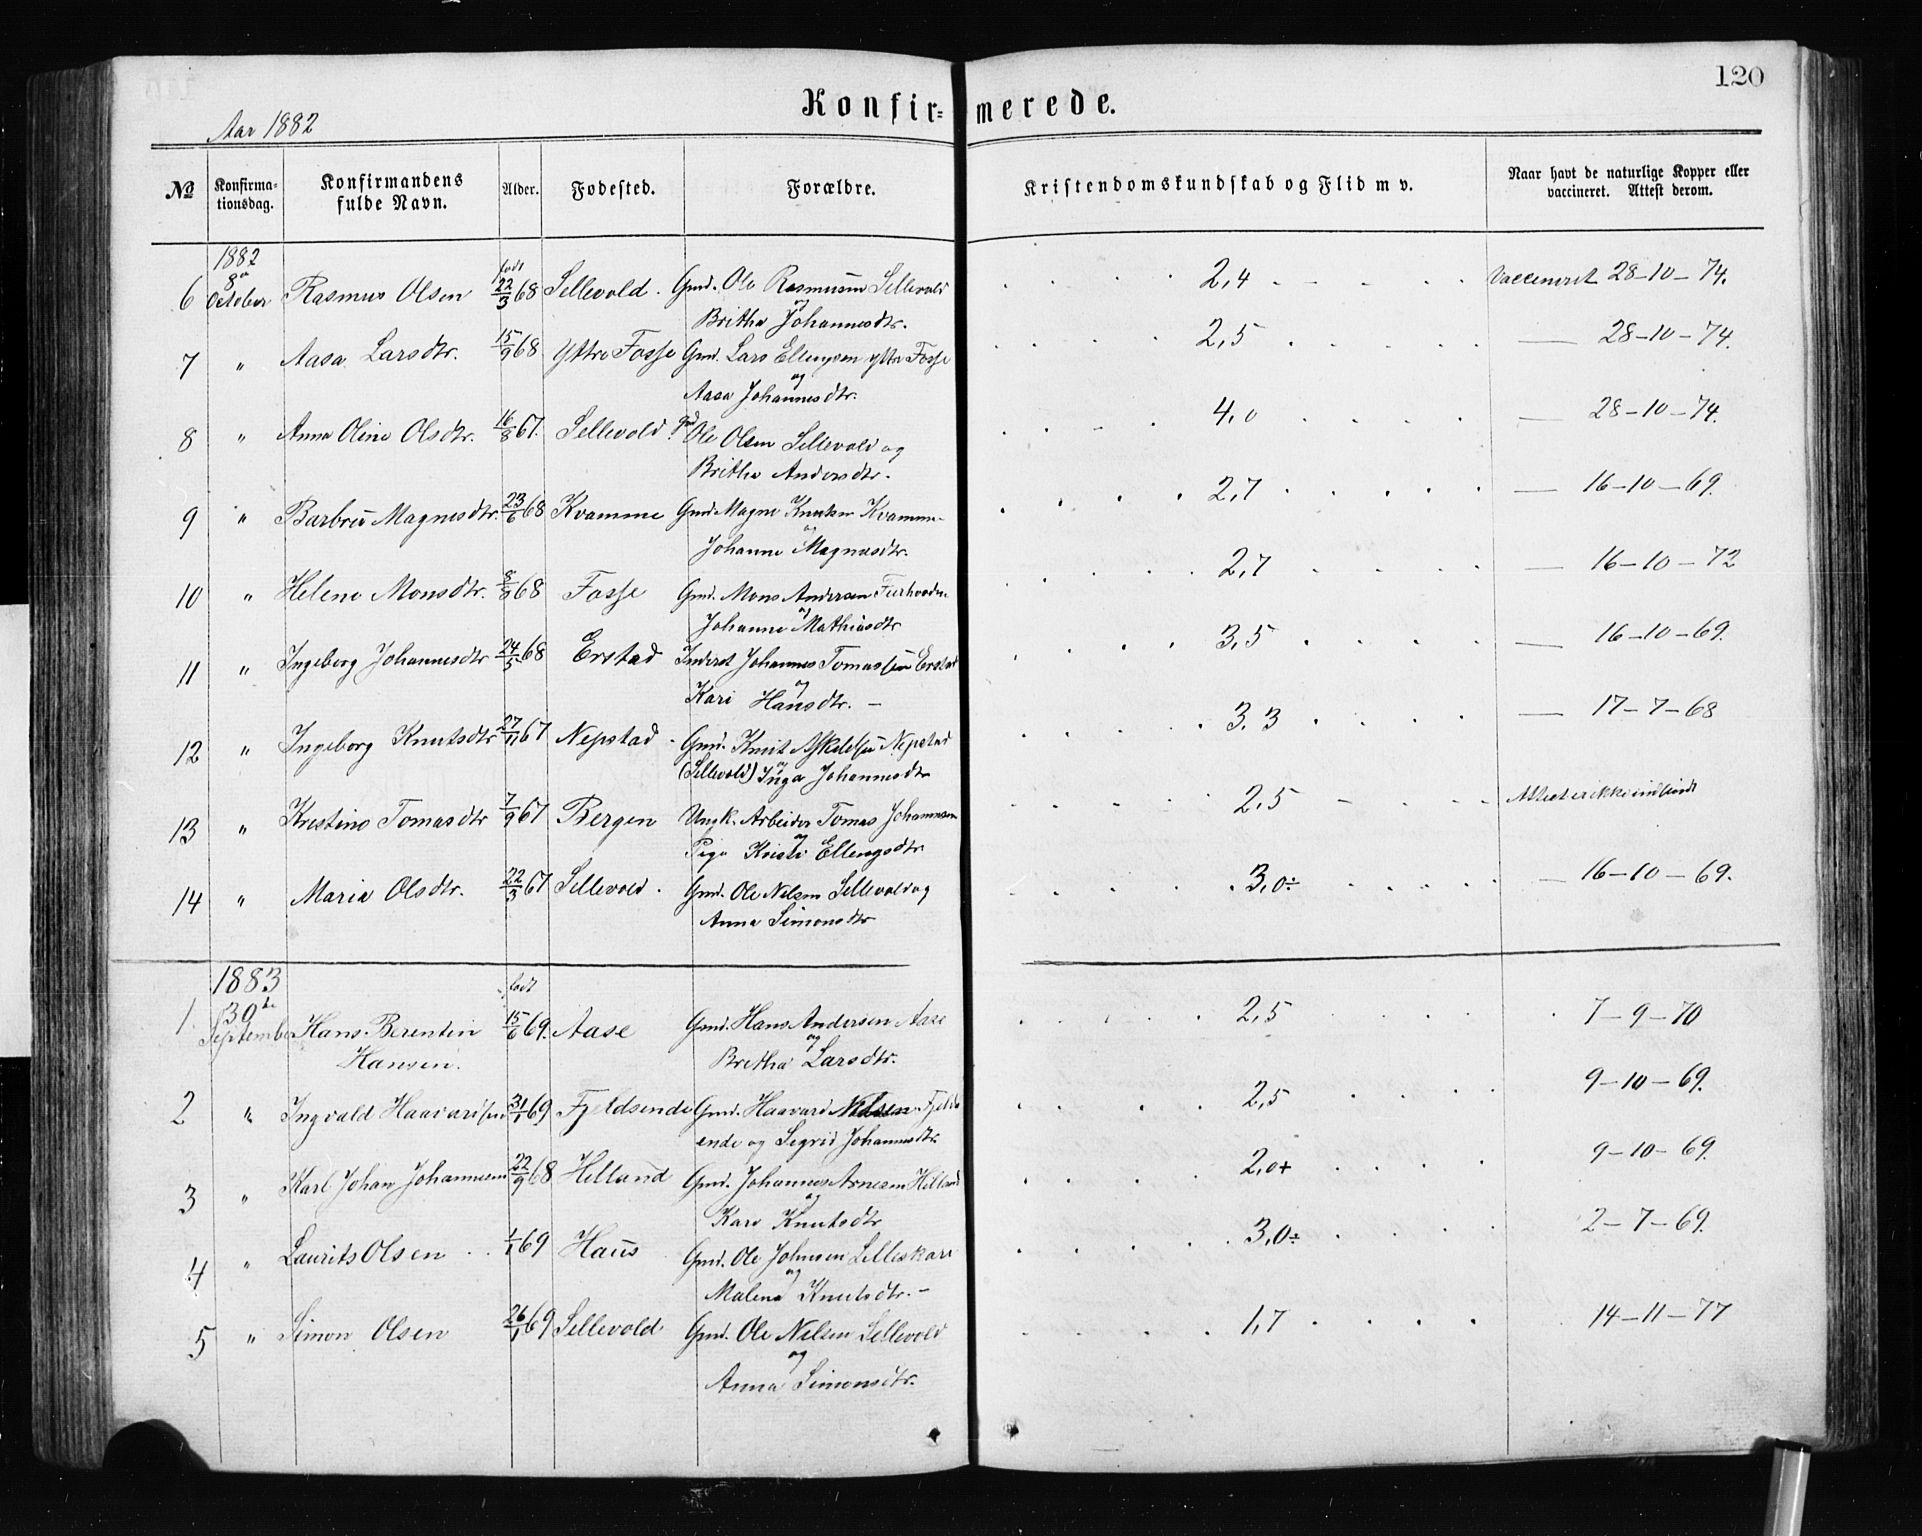 120
Konfir= merede.
Aar 1882
No Konfirma= Konfirmandens Alder. Fødested. Forældre. Kristendomskundskab og Flid m v. Naar havt de naturlige Kopper eller
tionsdag. fulde Navn. vaccineret. Attest derom.
1882 født
6 8de October Rasmus Olsen 22/3 68 Sellevold. Gmd. Ole Rasmusen Sellevold 2,4 Vaccineret 28-10-74.
og
Britha Johannesdtr.
7 " Aasa Larsdtr. 15/9 68 Yttre Fosse Gmd. Lars Ellingsen yttre Fosse 2,5 — 28-10-74.
og
Aasa Johannesdtr.
8 " Anna Oline Olsdtr. 16/8 67. Sellevold. Gmd Ole Olsen Sellevold og 4,0 — 28-10-74.
Britha Andersdtr.
9 " Barbru Magnesdtr. 23/6 68 Kvamme Gmd. Magne Knutsen Kvamme 2,7 — 16-10-69.
og
Johanne Magnesdtr.
10 " Helene Monsdtr. 68 Fosse Gmd. Mons Andersen 2,7 — 16-10-72
og
Johanne Mathiasdtr
11 " Ingeborg Johannesdtr 24/5 68 Erstad Inderst Johannes Tomassen Erstad 3,5 — 16-10-69.
og
Kari Hansdtr. —
12 " Ingeborg Knutsdtr 27/11 67 Nepstad. Gmd. Knut Nepstad 3.3 — 17-7-68
og
(Sellevold) Inga Johannesdtr
13 " Kristine Tomasdtr 7/9 67 Bergen Ungk. Arbeider Tomas Johannesen 2,5 Attest er ikke indsendt
og
Pige Kristi Ellingsdtr
14 " Maria Olsdtr. 22/3 67 Sellevold. Gmd. Ole Nelsen Sellevold og 3,0÷ — 16-10-69.
Anna Simonsdtr
1883 født
1 30te September Hans Berentin 15/6 69. Aase Gmd. Hans Andersen Aase 2,5 7-9-70
og
Hansen. Britha Larsdtr.
2 " Ingvald Haavardsen 31/1 69 Fjeldsende Gmd. Haavard Nelsen Fjelds 2,5 9-10-69.
ende og Sigrid Johannesdtr.
3 " Karl Johan Johannesen 22/9 68 Helland Gmd. Johannes Arnesen Helland 2,0+ 9-10-69.
og
Kari Knutsdtr
4 " Laurits Olsen 1/1 69 Haus Gmd. Ole Johnsen Lilleskare 3,0÷ 2-7-69.
og
Malena Knutsdtr. —
5 " Simon Olsen 26/1 69 Sellevold Gmd. Ole Nelsen Sellevold 1,7 14-11-77
og
Anna Simonsdtr.